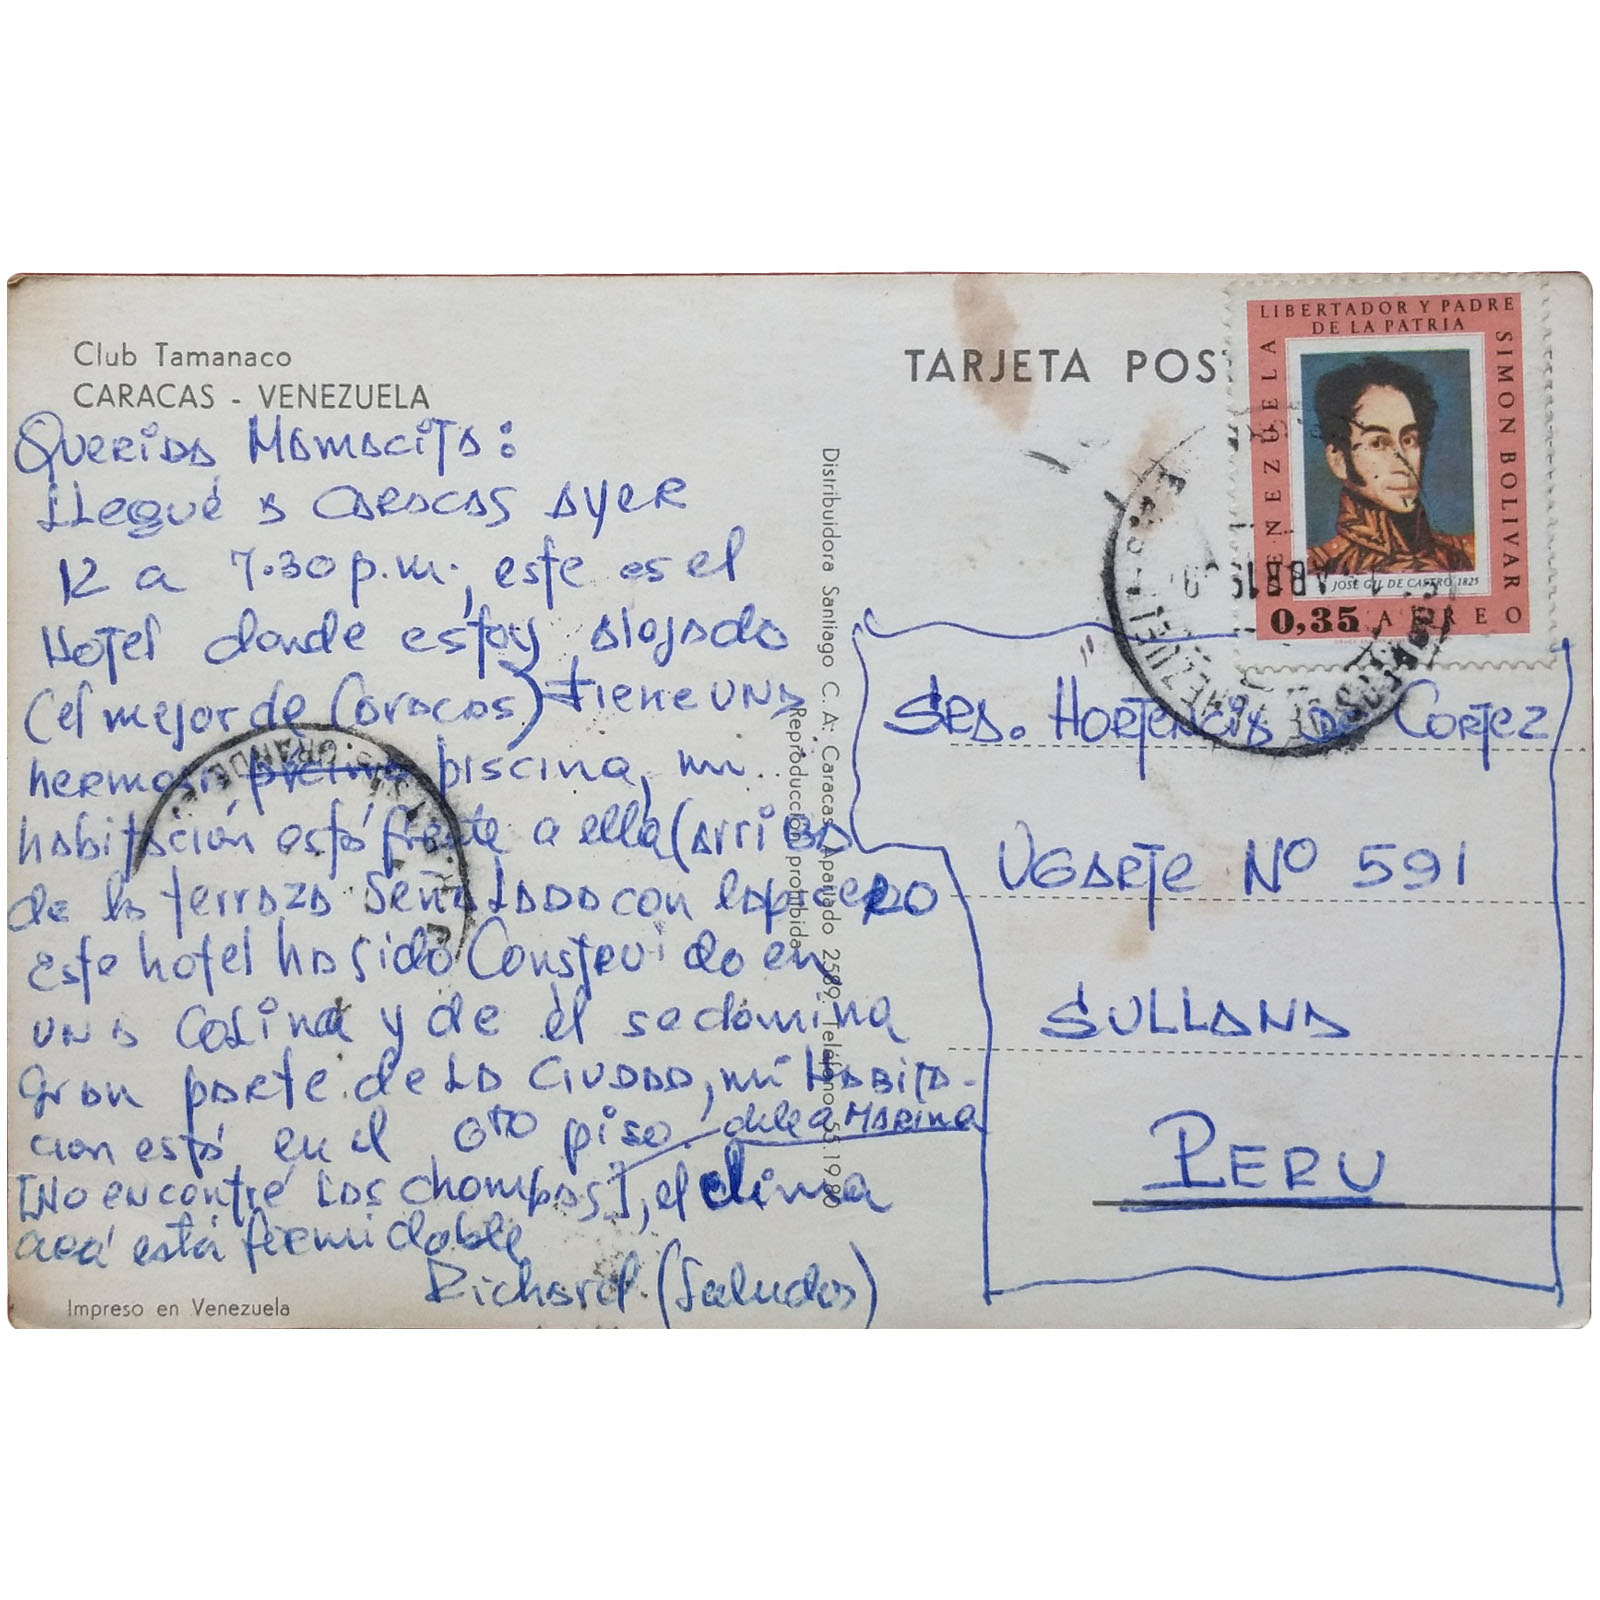 Club Tamanaco
CARACAS - VENEZUELA
Querida Mamacita:
Llegué a Caracas ayer
12 a 7.30 p.m., este es el
Hotel donde estoy alojado
(el mejor de Caracas) tiene una
hermosa piscina, mi
habitación está frente a ella (arriba
de la terraza señalada con lapicero
Este hotel ha sido construido en
una colina y de él se domina
gran parte de la ciudad, mi habita-
cion está en el 6to piso.
de la Marina
[No encontré las chompas], el clima
acá está formidable
Richard. (Saludos)
Impreso en Venezuela
Distribuidora Santiago C. A. Caracas. Apartado 2589. Teléfono 55.19.80
Reproducción prohibida
TARJETA POST
LIBERTADOR Y PADRE
DE LA PATRIA
VENEZUELA
SIMON BOLIVAR
JOSE GIL DE CASTRO 1825
0,35 AEREO
Sra. Hortencia de Cortez
Ugarte No 591
Sullana
PERU